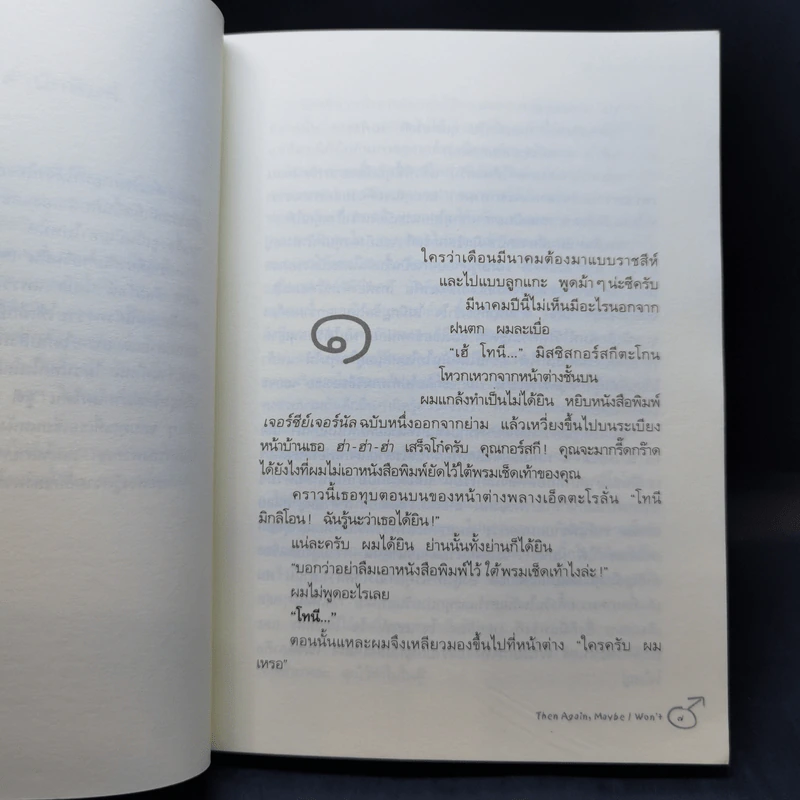 ใครว่าเดือนมีนาคมต้องมาแบบราชสีห์
และไปแบบลูกแกะ พูดม้าๆ น่ะซีครับ
มีนาคมปีนี้ไม่เห็นมีอะไรนอกจาก
ฝนตก ผมละเบื่อ
๑
“เฮ้ โทนี...” มิสซิสกอร์สกีตะโกน
โหวกเหวกจากหน้าต่างชั้นบน
ผมแกล้งทำเป็นไม่ได้ยิน หยิบหนังสือพิมพ์
เจอร์ซีย์เจอร์นัล ฉบับหนึ่งออกจากย่าม แล้วเหวี่ยงขึ้นไปบนระเบียง
หน้าบ้านเธอ ฮ่า-ฮ่า-ฮ่า เสร็จโก๋ครับ คุณกอร์สกี! คุณจะมากรี๊ดกร๊าด
ได้ยังไงที่ผมไม่เอาหนังสือพิมพ์ยัดไว้ใต้พรมเช็ดเท้าของคุณ
คราวนี้เธอทุบตอนบนของหน้าต่างพลางเอ็ดตะโรลั่น “โทนี
มิกลิโอน! ฉันรู้นะว่าเธอได้ยิน!”
แน่ละครับ ผมได้ยิน ย่านนั้นทั้งย่านก็ได้ยิน
“บอกว่าอย่าลืมเอาหนังสือพิมพ์ไว้ใต้พรมเช็ดเท้าไงล่ะ!”
ผมไม่พูดอะไรเลย
“โทนี...”
ตอนนั้นแหละผมจึงเหลียวมองขึ้นไปที่หน้าต่าง “ใครครับ ผม
เหรอ”
Then Again, Maybe I Won't